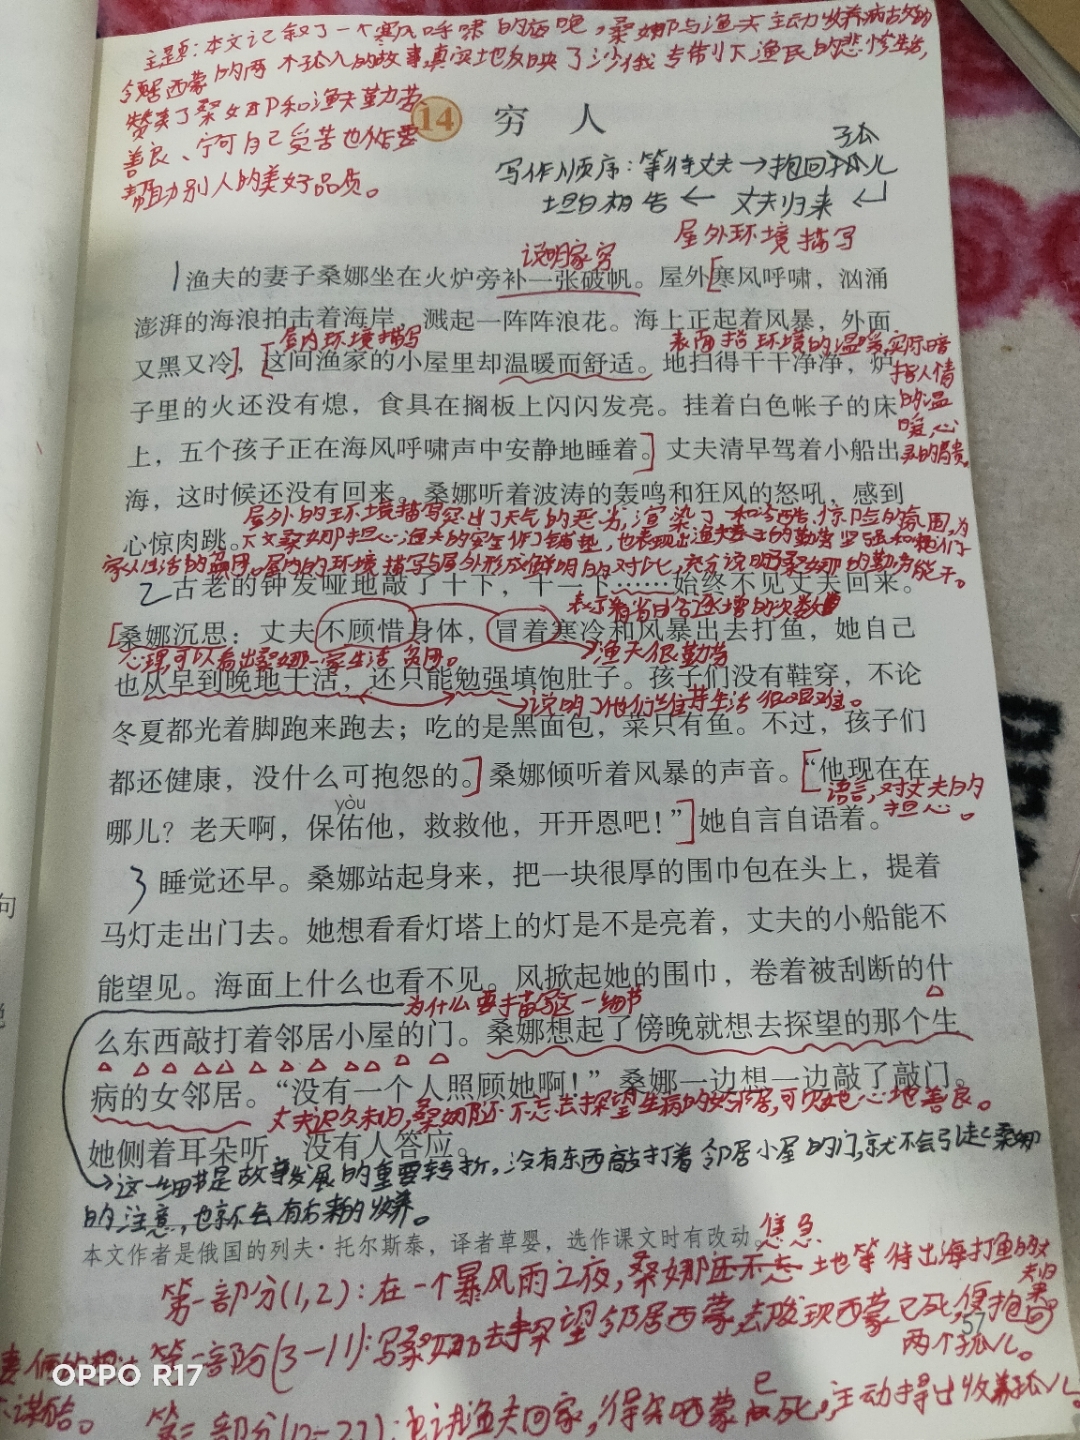 主题:本文记叙了一个寒风呼啸的夜晚,桑娜与渔夫主动收养病故的
邻居西蒙的两个孤儿的故事,真实地反映了沙俄专制下渔民的悲惨生活,
赞美了桑娜和渔夫勤劳
善良、宁可自己受苦也要
帮助别人的美好品质。
14 穷人
写作顺序:等待丈夫→抱回孤儿
孤
坦白相告 ← 丈夫归来
屋外环境描写
说明家穷
1 渔夫的妻子桑娜坐在火炉旁补一张破帆。屋外寒风呼啸,汹涌
澎湃的海浪拍击着海岸,溅起一阵阵浪花。海上正起着风暴,外面
屋内环境描写
表面指环境的温暖,实际暗
又黑又冷,这间渔家的小屋里却温暖而舒适。地扫得干干净净,炉
指人情
子里的火还没有熄,食具在搁板上闪闪发亮。挂着白色帐子的床
的温
暖,心
上,五个孩子正在海风呼啸声中安静地睡着。丈夫清早驾着小船出
灵的高贵。
海,这时候还没有回来。桑娜听着波涛的轰鸣和狂风的怒吼,感到
屋外的环境描写突出了天气的恶劣,渲染了一种冷酷、惊险的氛围,为
心惊肉跳。
下文桑娜担心渔夫的安全作了铺垫,也表现出渔夫的勤劳坚强和他们
家人生活的困。屋内的环境描写与屋外形成鲜明的对比,充分说明桑娜的勤劳能干。
2 古老的钟发哑地敲了十下,十一下……始终不见丈夫回来。
表示省略逐增的次数
[桑娜沉思:丈夫不顾惜身体,冒着寒冷和风暴出去打鱼,她自己
心理,可以看出桑娜一家生活穷困。
渔夫很勤劳
也从早到晚地干活,还只能勉强填饱肚子。孩子们没有鞋穿,不论
说明了他们维持生活很艰难。
冬夏都光着脚跑来跑去;吃的是黑面包,菜只有鱼。不过,孩子们
都还健康,没什么可抱怨的。]桑娜倾听着风暴的声音。[“他现在在
语言,对丈夫的
担心。
yòu
哪儿?老天啊,保佑他,救救他,开开恩吧!”]她自言自语着。
3 睡觉还早。桑娜站起身来,把一块很厚的围巾包在头上,提着
马灯走出门去。她想看看灯塔上的灯是不是亮着,丈夫的小船能不
能望见。海面上什么也看不见。风掀起她的围巾,卷着被刮断的什
为什么要描写这一细节
么东西敲打着邻居小屋的门。桑娜想起了傍晚就想去探望的那个生
病的女邻居。“没有一个人照顾她啊!”桑娜一边想一边敲了敲门。
丈夫迟迟未归,桑娜还不忘去探望生病的女邻居,可见她心地善良。
她侧着耳朵听,没有人答应。
→这一细节是故事发展的重要转折,没有东西敲打着邻居小屋的门,就不会引起桑娜
的注意,也就不会有后来的收养。
本文作者是俄国的列夫·托尔斯泰,译者草婴,选作课文时有改动。
焦急
第一部分(1,2):在一个暴风雨之夜,桑娜还不忘地等待出海打鱼的丈
夫归来。
第二部分(3-11):写桑娜去探望邻居西蒙,去发现西蒙已死,便抱回
57
两个孤儿。
第三部分(12-27):
渔夫回家,得知西蒙已死,主动提出收养孤儿
OPPO R17
句